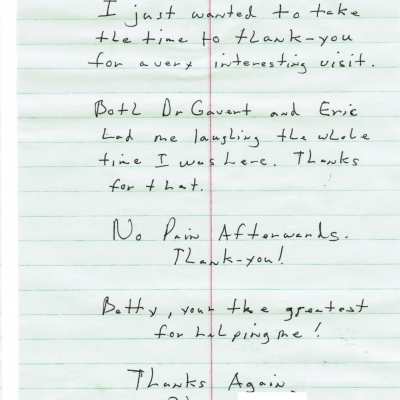 I just wanted to take
the time to thank-you
for a very interesting visit.
Both Dr Gavert and Eric
had me laughing the whole
time I was here. Thanks
for that.
No Pain Afterwards.
Thank-you!
Betty, your the greatest
for helping me!
Thanks Again.